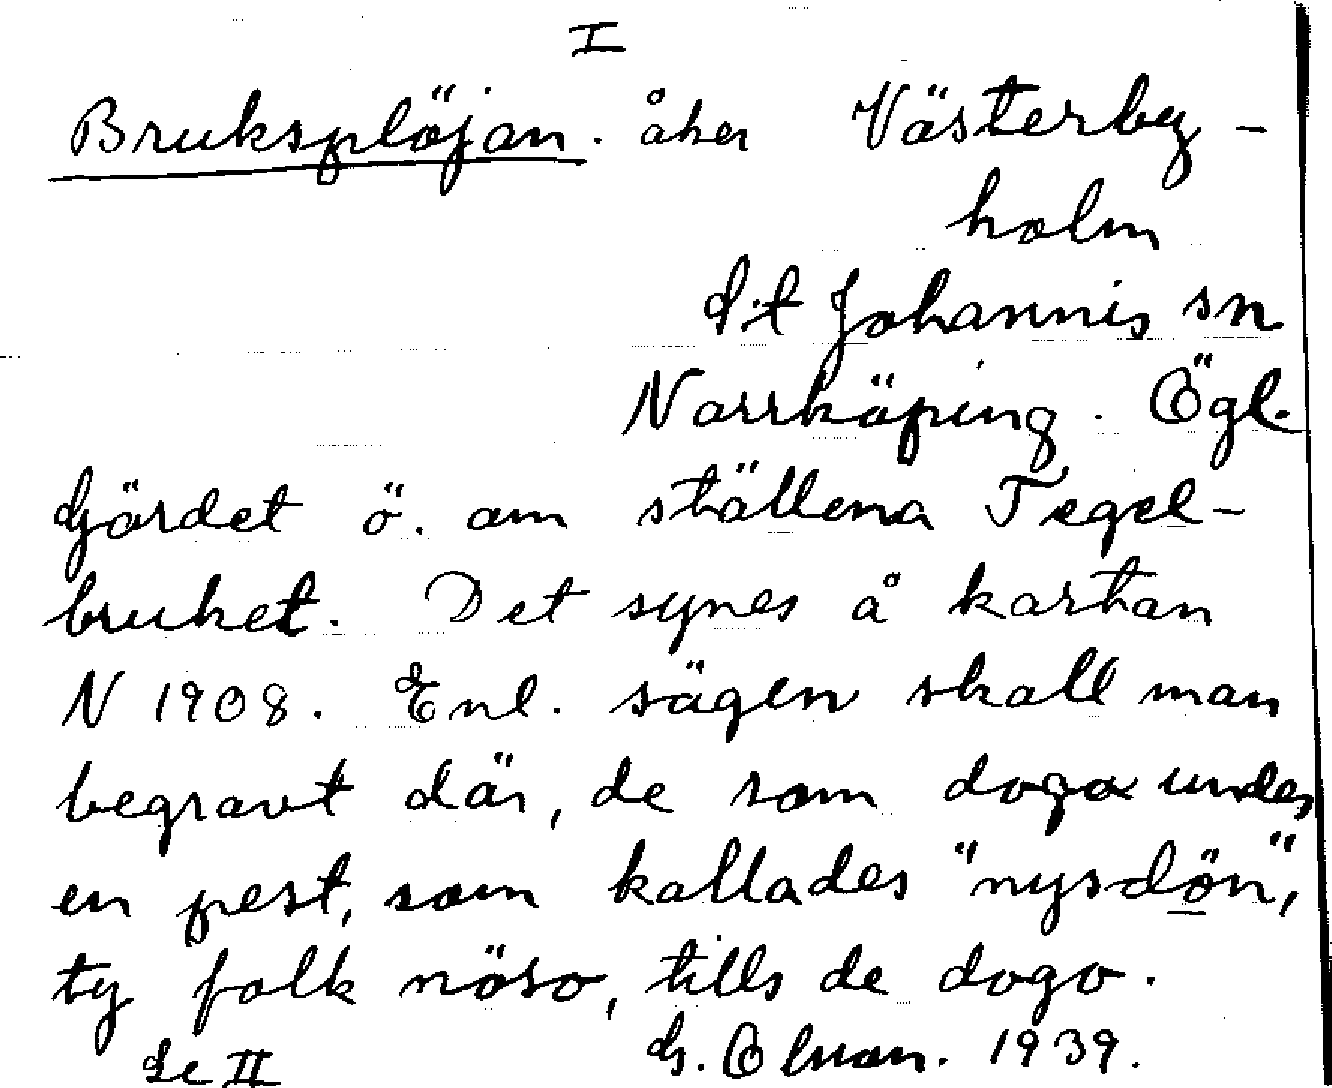 I
Bruksplöjan. åker Västerby-
holm
St Johannis sn
Norrköping. Ögl.
Gärdet ö. om ställena Tegel-
bruket. Det synes å kartan
N 1908. Enl. sägen skall man
begravt där, de som dogo under
en pest, som kallades "nysdön",
ty folk nöso, tills de dogo.
Se II G. Olsson. 1939.